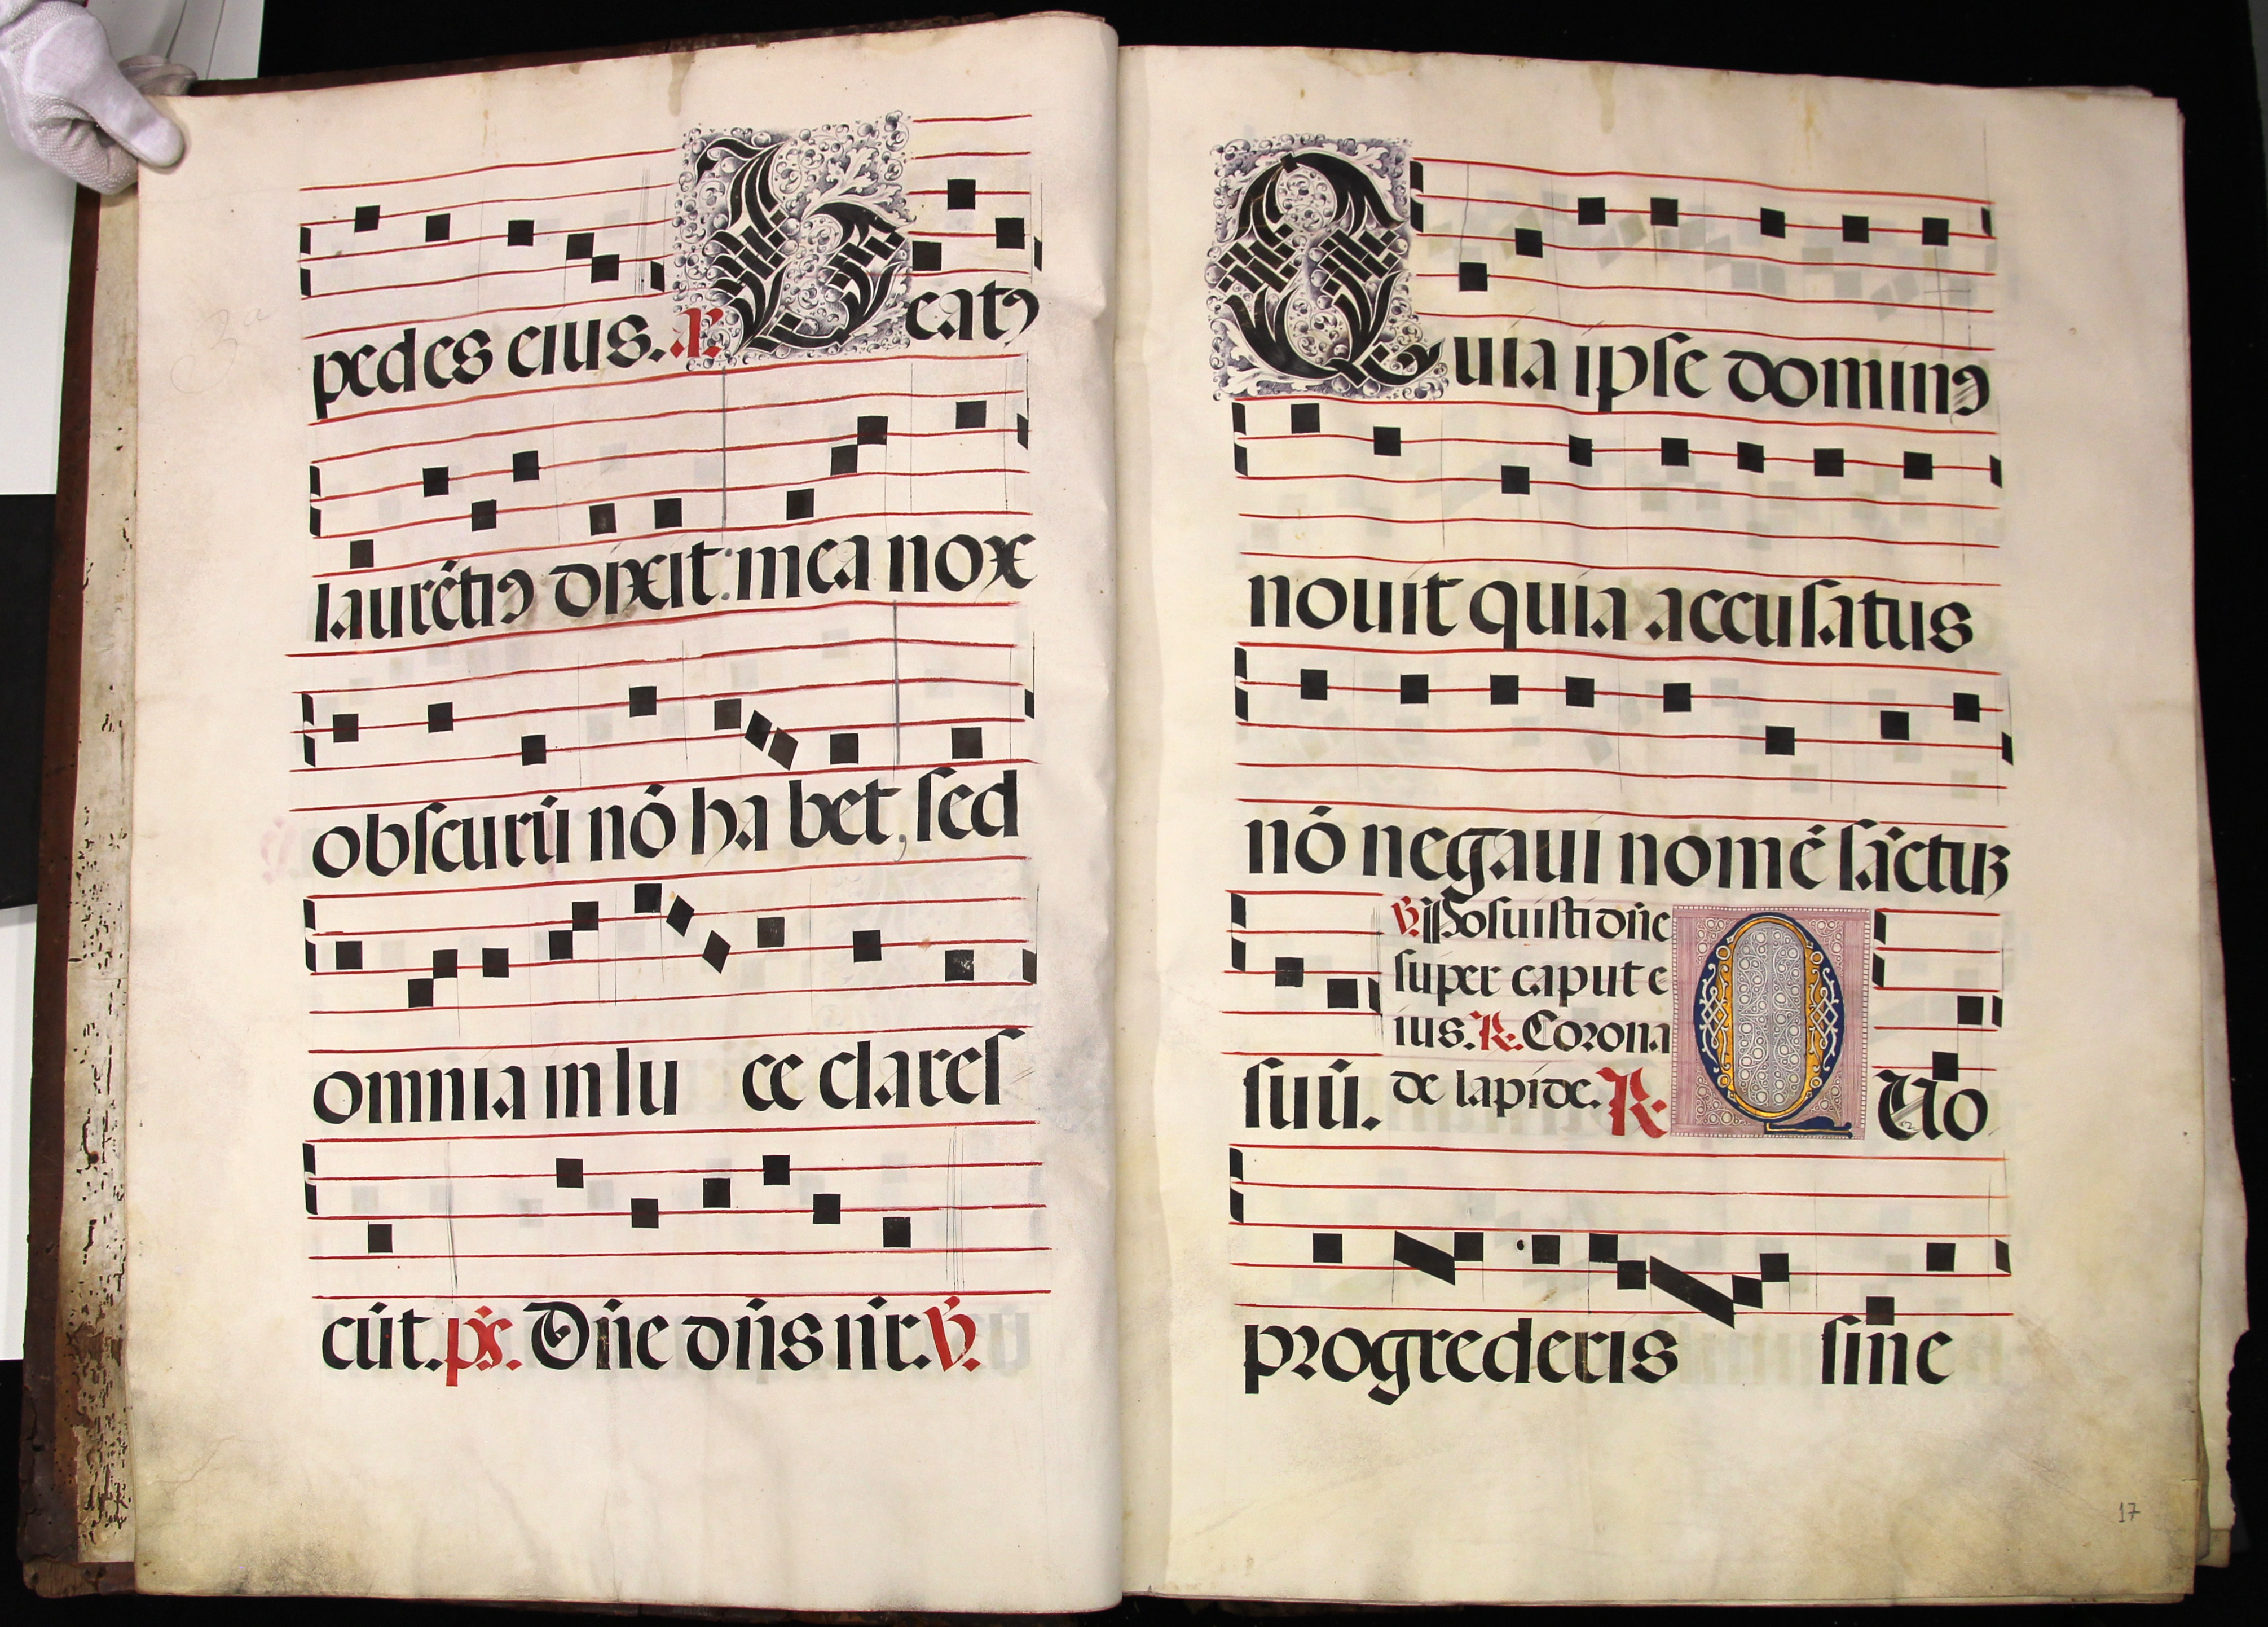 pedes eius. a. Beatꝯ
laurẽtiꝯ dixit: mea nox
obscurũ nõ ha bet, sed
omnia in lu ce claresſ
cũt. ps̃. Dñe dñs nr̃. ℣.
Quia ipſe dominꝯ
nouit quia accuſatus
nõ negaui nomẽ ſãctuʒ
ſuũ.
℣. Poſuiſti dñe
ſuper caput e
ius. ℟. Corona
de lapide. ℟. QUo
progrederis ſine
17